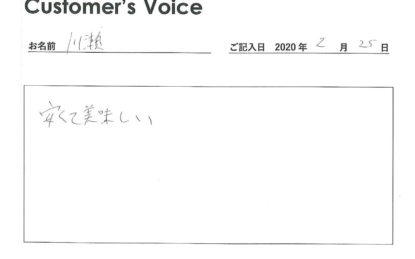 Customer's Voice
お名前 川瀬 ご記入日 2020年 2月 25日
安くて美味しい